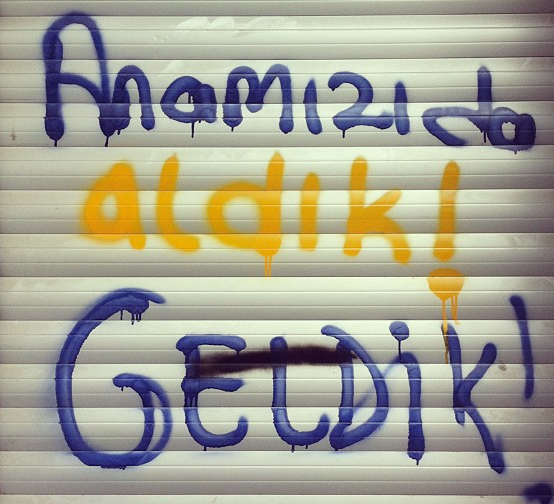 Anamızıda
aldık!
GELDik!